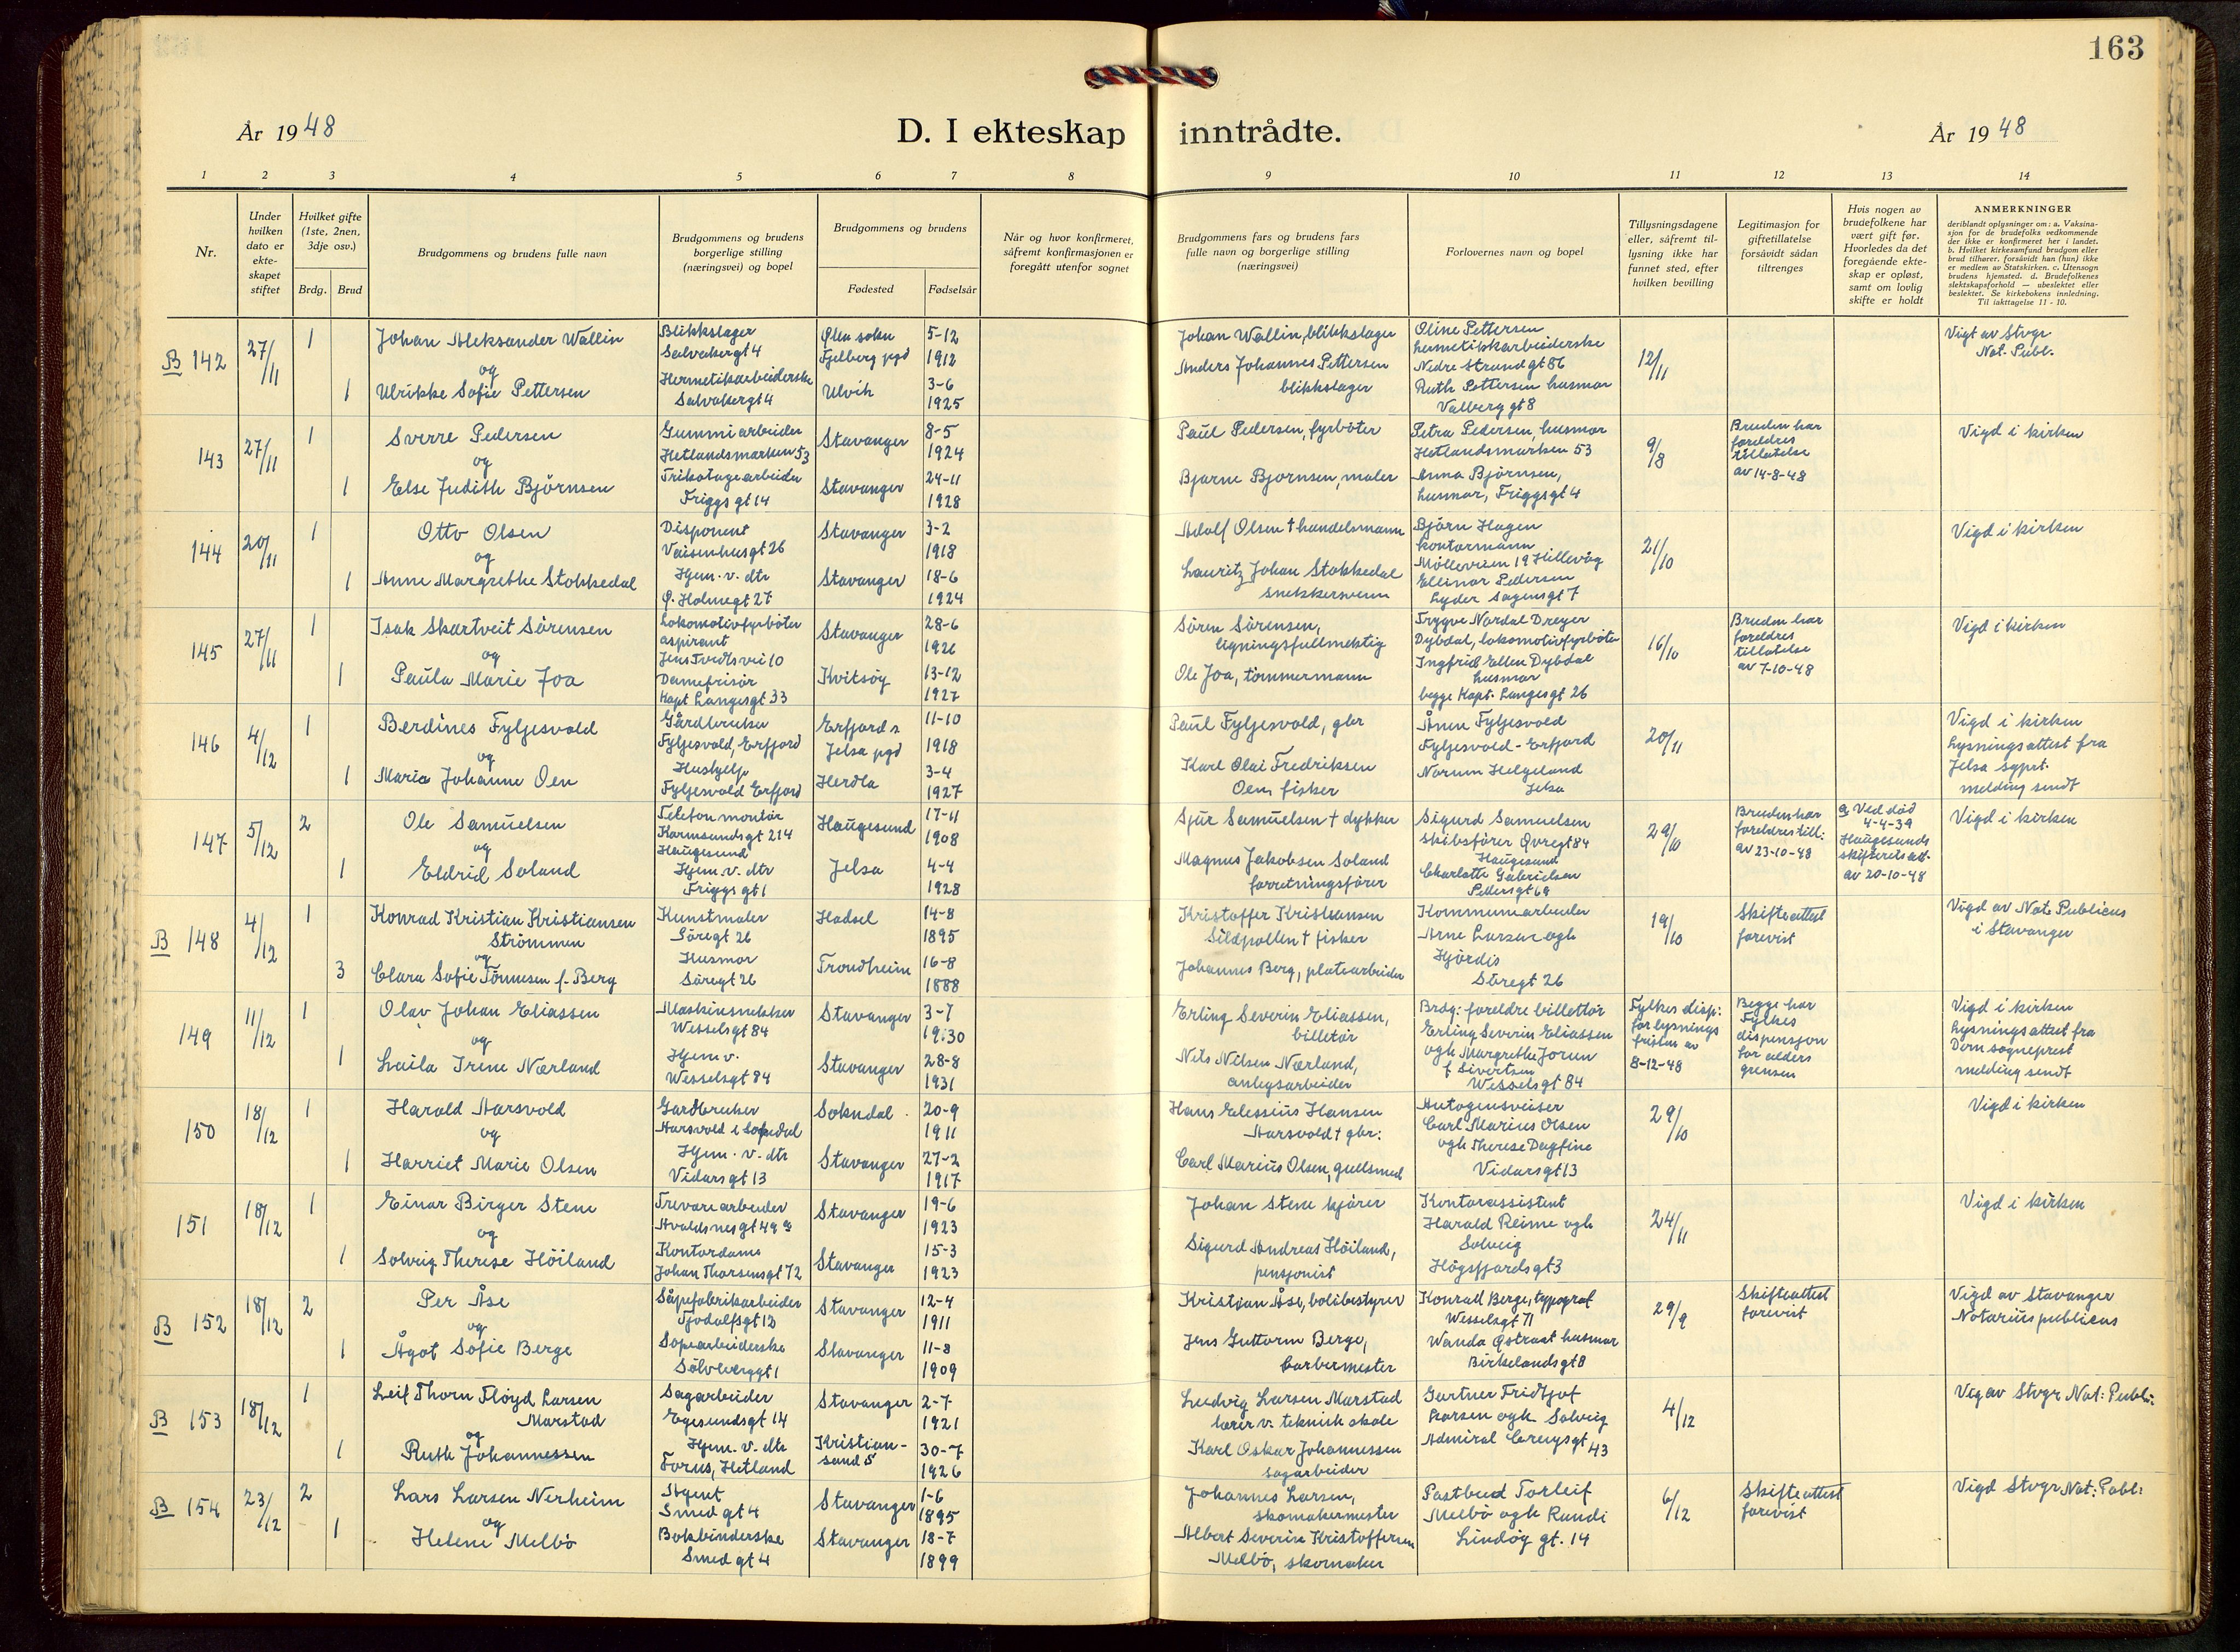 163
År 1948
D. I ekteskap inntrådte.
År 1948
1 2 3 4 5 6 7 8 9 10 11 12 13 14
Nr.
Under hvilken dato er ekteskapet stiftet
Hvilket gifte (1ste, 2nen, 3dje osv.)
Brdg. Brud
Brudgommens og brudens fulle navn
Brudgommens og brudens borgerlige stilling (næringsvei) og bopel
Brudgommens og brudens
Fødested Fødselsår
Når og hvor konfirmeret, såfremt konfirmasjonen er foregått utenfor sognet
Brudgommens fars og brudens fars fulle navn og borgerlige stilling (næringsvei)
Forlovernes navn og bopel
Tillysningsdagene eller, såfremt tillysning ikke har funnet sted, efter hvilken bevilling
Legitimasjon for giftetillatelse forsåvidt sådan tiltrenges
Hvis nogen av brudefolkene har vært gift før. Hvorledes da det foregående ekteskap er opløst, samt om lovlig skifte er holdt
ANMERKNINGER
deriblandt oplysninger om: a. Vaksinasjon for de brudefolks vedkommende der ikke er konfirmeret her i landet. b. Hvilket kirkesamfund brudgom eller brud tilhører, forsåvidt han (hun) ikke er medlem av Statskirken. c. Utensogn brudens hjemsted. d. Brudefolkenes slektskapsforhold — ubeslektet eller beslektet. Se kirkebokens innledning. Til iakttagelse 11 - 10.
B 142 27/11 1 Johan Aleksander Wallin
og
1 Ulrikke Sofie Pettersen
Blikkslager
Salvakergt 4
Hermetikarbeiderske
Salvakergt 4
Ølen sokn
Fjelberg pgd
Ulvik
5-12
1912
3-6
1925
Johan Wallin, blikkslager
Anders Johannes Pettersen
blikkslager
Oline Pettersen
hermetikkarbeiderske
Nedre Strandgt 86
Ruth Pettersen husmor
Valberggt 8
12/11
Vigt av Stvgr.
Not. Publ.
143 27/11 1 Sverre Pedersen
og
1 Else Judith Björnsen
Gummiarbeider
Hetlandsmarken 53
Trikotagearbeider
Friggs gt 14
Stavanger
Stavanger
8-5
1924
24-11
1928
Paul Pedersen, fyrböter
Bjarne Bjornsen, maler
Petra Pedersen, husmor
Hetlandsmarken 53
Anna Björnsen,
husmor, Friggsgt 4
9/8
Bruden har
foreldres
tillatelse
av 14-8-48
Vigd i kirken
144 20/11 1 Otto Olsen
og
1 Anne Margrethe Stokkedal
Disponent
Vaisenhusgt 26
Hjem. v. dtr
Ø. Holmegt 27
Stavanger
Stavanger
3-2
1918
18-6
1924
Adolf Olsen † handelsmann
Lauritz Johan Stokkedal
snekkersvenn
Björn Hagen
kontormann
Mölleveien 19 Hillevåg
Ellinor Pedersen
Lyder Sagensgt 7
21/10
Vigd i kirken
145 27/11 1 Isak Skartveit Sörensen
og
1 Paula Marie Joa
Lokomotivfyrböter
aspirant
Jens Tvedtsvei 10
Damefrisör
Kapt Langesgt 33
Stavanger
Kvitsöy
28-6
13-12
1927
Sören Sörensen,
ligningsfullmektig
Ole Joa, tömmermann
Trygve Nordal Dreyer
Dybdal, lokomotivfyrböter
Ingfrid Ellen Dybdal
husmor
begge Kapt. Langesgt 26
16/10
Bruden har
foreldres
tillatelse
av 7-10-48
Vigd i kirken
146 4/12 1 Berdines Fyljesvold
og
1 Marie Johanne Oen
Gårdbruker
Fyljesvold, Erfjord
Hushjelp
Fyljesvold Erfjord
Erfjord s
Jelsa pgd
Herdla
11-10
1918
3-4
1927
Paul Fyljesvold, gbr
Karl Olai Fredriksen
Oen, fisker
Ånen Fyljesvold
Fyljesvold - Erfjord
Helgeland
Jelsa
20/11
Vigd i kirken
Lysningsattest fra
Jelsa sgprt.
melding sendt
147 5/12 2 Ole Samuelsen
og
1 Eldrid Soland
Telefon montör
Karmsundsgt 214
Haugesund
Hjem. v. dtr
Friggs gt 1
Haugesund
Jelsa
17-11
1908
4-4
1928
Sjur Samuelsen † dykker
Magnus Jakobsen Soland
forretningsförer
Sigurd Samuelsen
skibsförer Øvregt 84
Haugesund
Charlotte Gabrielsen
Pedersgt 69
29/10
Bruden har
foreldres till:
av 23-10-48
Ved död
4-4-39
Haugesunds
skifteretsatt.
av 20-10-48
Vigd i kirken
B 148 4/12 1 Konrad Kristian Kristiansen
Strömmen
og
3 Clara Sofie Tönnesen f. Berg
Kunstmaler
Söregt 26
Husmor
Söregt 26
Hadsel
Trondheim
14-8
1895
16-8
1888
Kristoffer Kristiansen
Sildpollen † fisker
Johannes Berg, platearbeider
Kommunearbeider
Arne Larsen ogh
Hjördis
Söregt 26
19/10
Skifteattest
forevist
Vigd av Not. Publicus
i Stavanger
149 11/12 1 Olav Johan Eliassen
og
1 Laila Irene Nærland
Maskinsnekker
Wesselsgt 84
Hjem v.
Wesselsgt 84
Stavanger
Stavanger
3-7
1930
28-8
1931
Erling Severin Eliassen,
billetör
Nils Nilsen Nærland,
anlegsarbeider
Brdg: foreldre billettör
Erling Severin Eliassen
ogh Margrethe Jorun
f Sivertsen
Wesselsgt 84
Fylkes disp:
for lysnings
fristen av
8-12-48
Begge har
Fylkes
dispensjon
for alders
grensen
Vigd i kirken
Lysningsattest fra
Dom sogneprest
melding sendt
150 18/12 1 Harald Aarsvold
og
1 Harriet Marie Olsen
Gardbruker
Aarsvold i Sokndal
Hjem. v. dtr
Vidarsgt 13
Sokndal
Stavanger
20-9
1911
27-2
1917
Hans Elessius Hansen
Aarsvold † gbr:
Carl Marius Olsen, gullsmed
Autogensveiser
Carl Marius Olsen
ogh Therese Dagfine
Vidarsgt 13
29/10
Vigd i kirken
151 18/12 1 Einar Birger Stene
og
1 Solveig Therese Höiland
Trevarearbeider
Avaldsnesgt 49
Kontordame
Johan Thorsensgt 72
Stavanger
Stavanger
19-6
1923
15-3
1923
Johan Stene kjörer
Sigurd Andreas Höiland,
pensjonist
Kontorassistent
Harald Reime ogh
Solveig
Högsfjordsgt 3
24/11
Vigd i kirken
B 152 18/12 2 Per Åse
og
1 Ågot Sofie Berge
Såpefabrikarbeider
Tjodolfsgt 12
Sopearbeiderske
Sölvberggt 1
Stavanger
Stavanger
12-4
1911
11-8
1909
Kristian Åse, bolibestyrer
Jens Guttorm Berge,
barbermester
Konrad Berge, typograf
Wesselsgt 71
Wanda Østraat husmor
Birkelandsgt 8
29/9
Skifteattest
forevist
Vigd av Stavanger
Notarius publicus
B 153 18/12 1 Leif Thorn Floyd Larsen
Marstad
og
1 Ruth Johannessen
Sagarbeider
Egesundsgt 14
Hjem. v. dtr
Forus, Hetland
Stavanger
Kristian-
sand S
2-7
1921
30-7
1926
Ludvig Larsen Marstad
lærer v. teknisk skole
Karl Oskar Johannessen
sagarbeider
Gartner Fridtjof
Larsen ogh Solveig
Admiral Cruysgt 43
4/12
Vig av Stvgr Not: Publi:
B 154 23/12 2 Lars Larsen Nerheim
og
1 Helene Melbö
Agent
Smedgt 4
Bokbinderske
Smedgt 4
Stavanger
Stavanger
1-6
1895
18-7
1899
Johannes Larsen,
skomakermester
Albert Severin Kristoffersen
Melbö, skomaker
Postbud Torleif
Melbö ogh Randi
Lindöy gt. 14
6/12
Skifteattest
forevist
Vigd Stvgr Not: Publ: